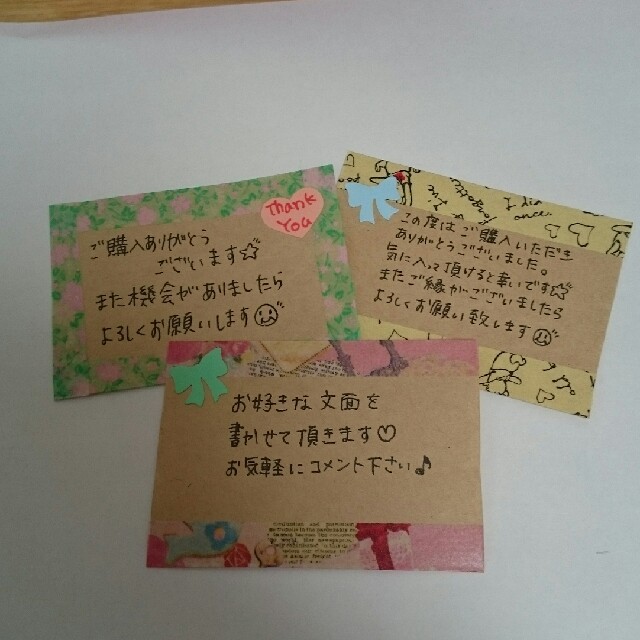 Thank
You
ご購入ありがとう
ございます☆
また機会がありましたら
よろしくお願いします
この度はご購入いただき
ありがとうございました。
気に入って頂けると幸いです☆
またご縁がございましたら
よろしくお願い致します
お好きな文面を
書かせて頂きます♡
お気軽にコメント下さい♪